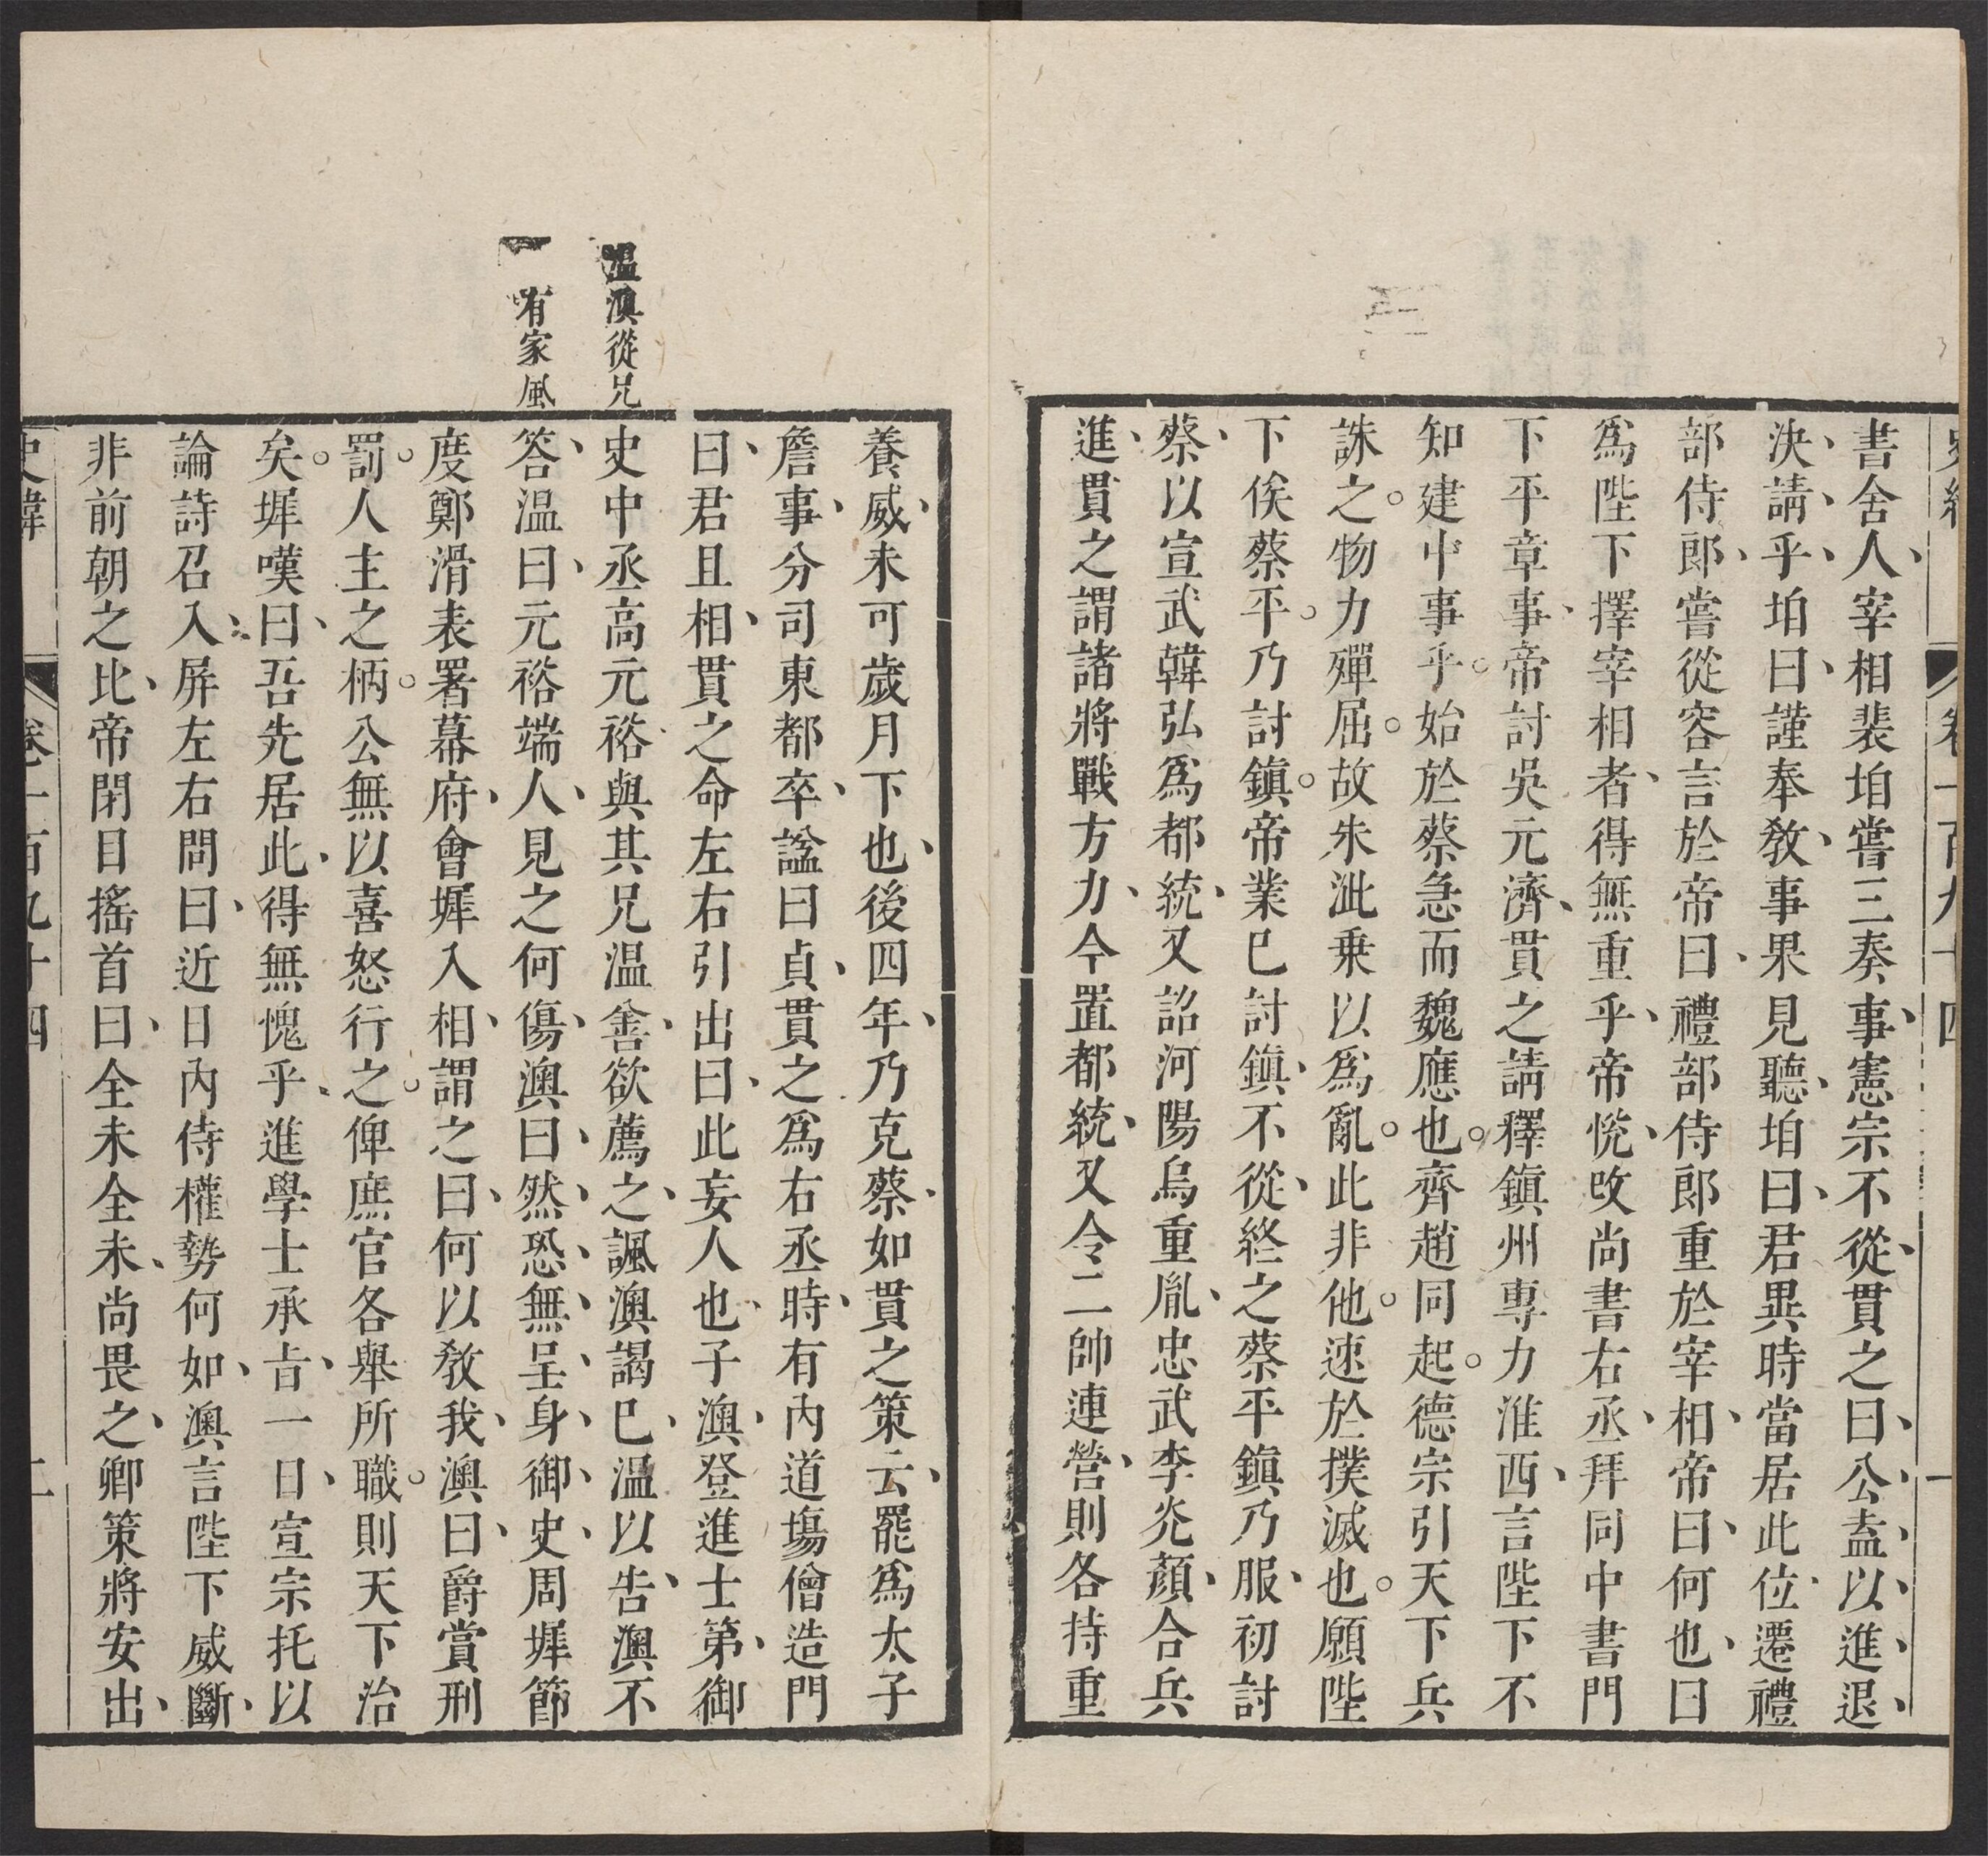 書舍人宰相裴垍嘗三奏事憲宗不從貫之曰公盍以進退
決請乎垍曰謹奉敎事果見聽垍曰君異時當居此位遷禮
部侍郎嘗從容言於帝曰禮部侍郎重於宰相帝曰何也曰
爲陛下擇宰相者得無重乎帝恱改尚書右丞拜同中書門
下平章事帝討吳元濟貫之請釋鎮州專力淮西言陛下不
知建中事乎始於蔡急而魏應也齊趙同起德宗引天下兵
誅之物力殫屈故朱泚乗以爲亂此非他速於撲滅也願陛
下俟蔡平乃討鎮帝業已討鎮不從終之蔡平鎮乃服初討
蔡以宣武韓弘爲都統又詔河陽烏重胤忠武李光顏合兵
進貫之謂諸將戰方力今置都統又令二帥連營則各持重
養威未可歲月下也後四年乃克蔡如貫之策云罷爲太子
詹事分司東都卒諡曰貞貫之爲右丞時有內道塲僧造門
曰君且相貫之命左右引出曰此妄人也子澳登進士第御
史中丞高元裕與其兄温善欲薦之諷澳謁已温以告澳不
答温曰元裕端人見之何傷澳曰然恐無呈身御史周墀節
度鄭滑表署幕府會墀入相謂之曰何以敎我澳曰爵賞刑
罰人主之柄公無以喜怒行之俾庶官各舉所職則天下治
矣墀嘆曰吾先居此得無愧乎進學士承㫖一日宣宗托以
論詩召入屏左右問曰近日內侍權勢何如澳言陛下威斷
非前朝之比帝閉目搖首曰全未全未尚畏之卿策將安出
温澳從兄
有家風
史緯
卷一百九十四
二